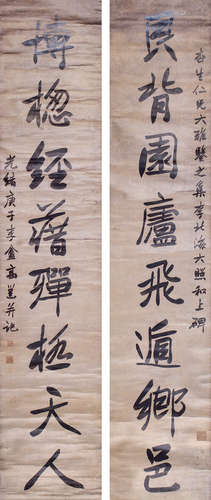 杏生仁兄大雅鑒之集李北海大照和上碑
負背園廬飛遁鄉邑
博楤經藉殫極天人
光緒庚子李盦高邕并記